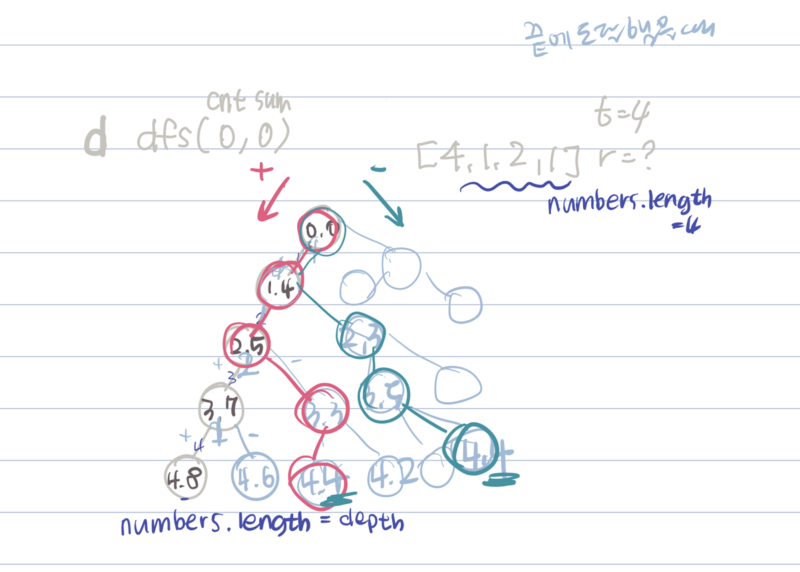 끝에 도
cnt sum
t=4
d dfs(0,0)
[4,1,2,1] r=?
+ -
numbers.length
=4
1.4
2.5
+ 2 -
3
3.7 3.3
+ 4 1 -
4.8 4.6 4.4 4.2 4.4
numbers.length = depth